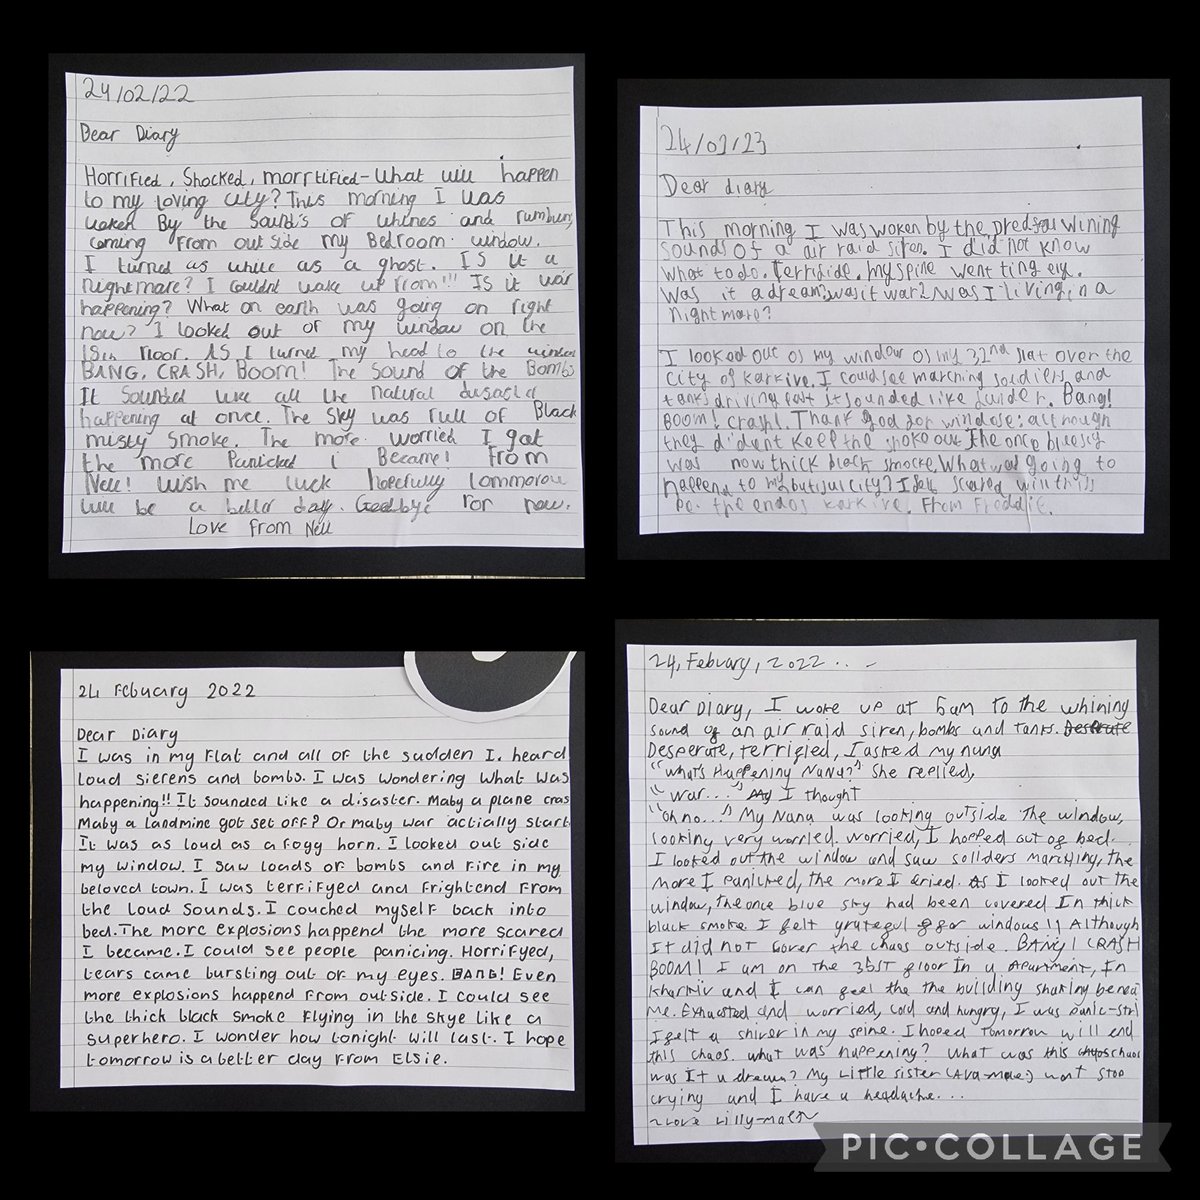 24/02/22
Dear Diary
Horrified, Shocked, morrtified - What will happen
to my loving city? This morning I was
waken By the Sounds of whines and
coming From out side my Bedroom window.
I turned as white as a ghost. IS it a
nightmare? I couldnt wake up from!!! Is it war
happening? What on earth was going on right
now? I looked out of my window on the
18th floor. AS I turned my head to the
BANG, CRASH, BOOM! The Sound of the Bombs
It Sounded like all the natural
happening at once. The Sky was full of Black
misty Smoke. The more worried I got
the more Panicked i Became! From
Nell! Wish me luck hopefully tommorow
will be a better day. Goodbye For now.
Love From Nell
24/02/23
Dear diary
This morning I was woken by the wining
sounds of a air raid siren. I did not know
what to do. my spine went
was it a dream, was it war? was I living in a
nightmare?
I looked out of my window of my 32nd flat over the
city of karkive. I could see marching and
tanks driving fast it sounded like Bang!
BOOM! crash! Thank god for windose: although
they did'ent keep the out. The once
was now thick black smocke. What was going to
to my city? I felt scared will this
be the end of karkive. From Freddie.
24 Febuary 2022
Dear Diary
I was in my flat and all of the sudden I. heard
loud sierens and bombs. I was wondering what was
happening!! It sounded like a disaster. Maby a plane cras
Maby a landmine got set off? Or maby war actially start
It was as loud as a fogg horn. I looked out side
my window. I saw loads of bombs and fire in my
beloved town. I was terrifyed and frightend from
the loud sounds. I couched myself back into
bed. The more explosions happend the more scared
I became. I could see people panicing. Horrifyed,
tears came bursting out of my eyes. BANG! Even
more explosions happend from outside. I could see
the thick black smoke flying in the skye like a
superhero. I wonder how tonight will last. I hope
tomorrow is a better day from ELSie.
24, February, 2022...
Dear Diary, I woke up at 5am to the whining
sound of an air raid siren, bombs and tanks.
Desperate, terrified, I asked my nana
"What's Happening Nana?" She replied,
"War..." I thought
"Oh no..." My Nana was looking outside the window,
looking very worried. worried, I hopped out of bed.
I looked out the window and saw soliders marching, the
more I panicked, the more I cried. As I looked out the
window, the once blue sky had been covered In thick
black smoke. I felt grateful for windows!! Although
It did not cover the chaos outside. BANG! CRASH
BOOM! I am on the floor In a Apartment, In
Kharkiv and I can feel the the building shaking benea
Me. Exhausted and worried, cold and hungry, I was panic-stri
I felt a shiver in my spine. I hoped Tomorrow will end
this chaos. what was happening? What was this chaos
was It a dream? My Little sister (Ava-mae) wont stop
crying and I have a headache...
~Love Lilly-mae~
PIC•COLLAGE